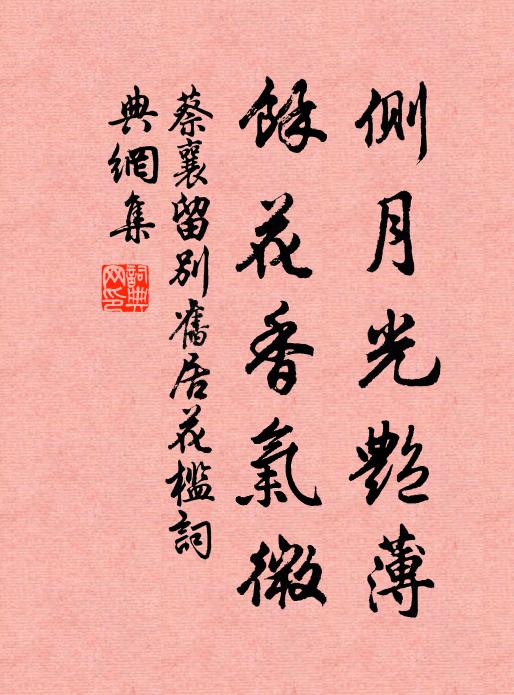 側月光艷薄
餘花香氣微
蔡襄留別舊居花檻詞
典網集
詞典網印